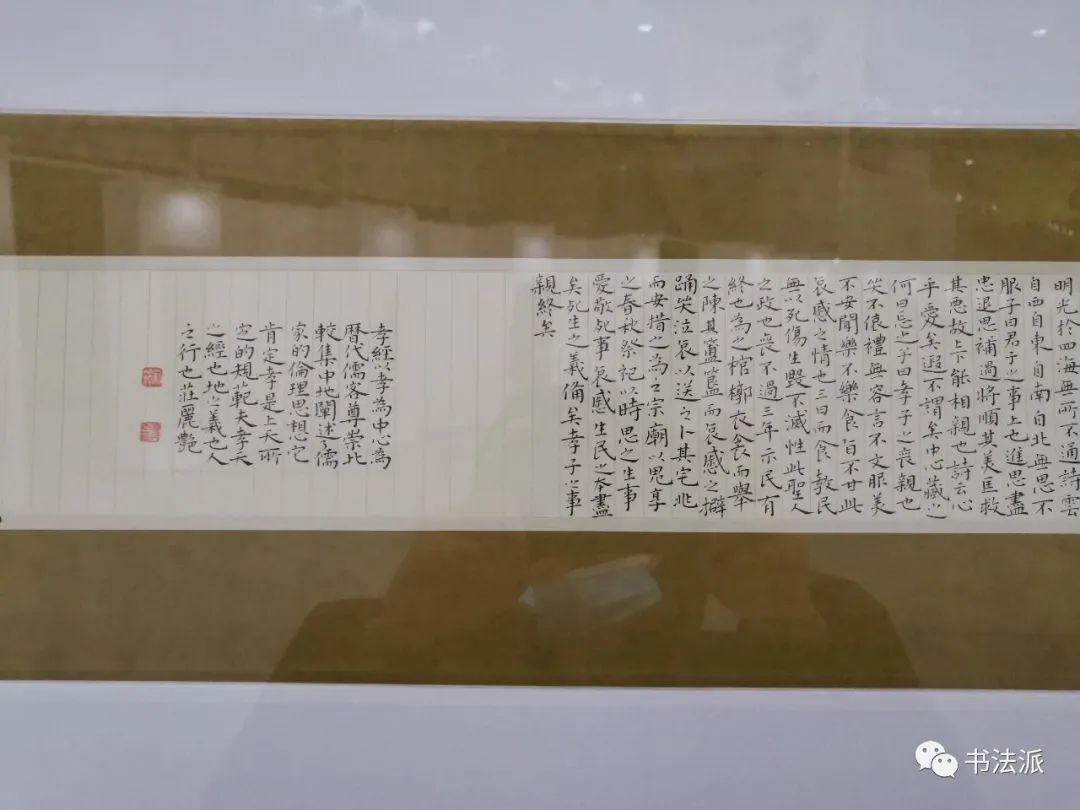 明光於四海無所不通詩雲
自西自東自南自北無思不
服子曰君子之事上也進思盡
忠退思補過將順其美匡救
其惡故上下能相親也詩云心
乎愛矣遐不謂矣中心藏之
何日忘之子曰孝子之喪親也
哭不偯禮無容言不文服美
不安聞樂不樂食旨不甘此
哀慼之情也三日而食教民
無以死傷生毀不滅性此聖人
之政也喪不過三年示民有
終也為之棺槨衣衾而舉
之陳其簠簋而哀慼之擗
踊哭泣哀以送之卜其宅兆
而安措之為之宗廟以鬼享
之春秋祭祀以時思之生事
愛敬死事哀慼生民之本盡
矣死生之義備矣孝子之事
親終矣
孝經以孝為中心為
歷代儒客尊崇比
較集中地闡述了儒
家的倫理思想它
肯定孝是上天所
定的規範夫孝天
之經也地之義也人
之行也莊麗艷
书法派